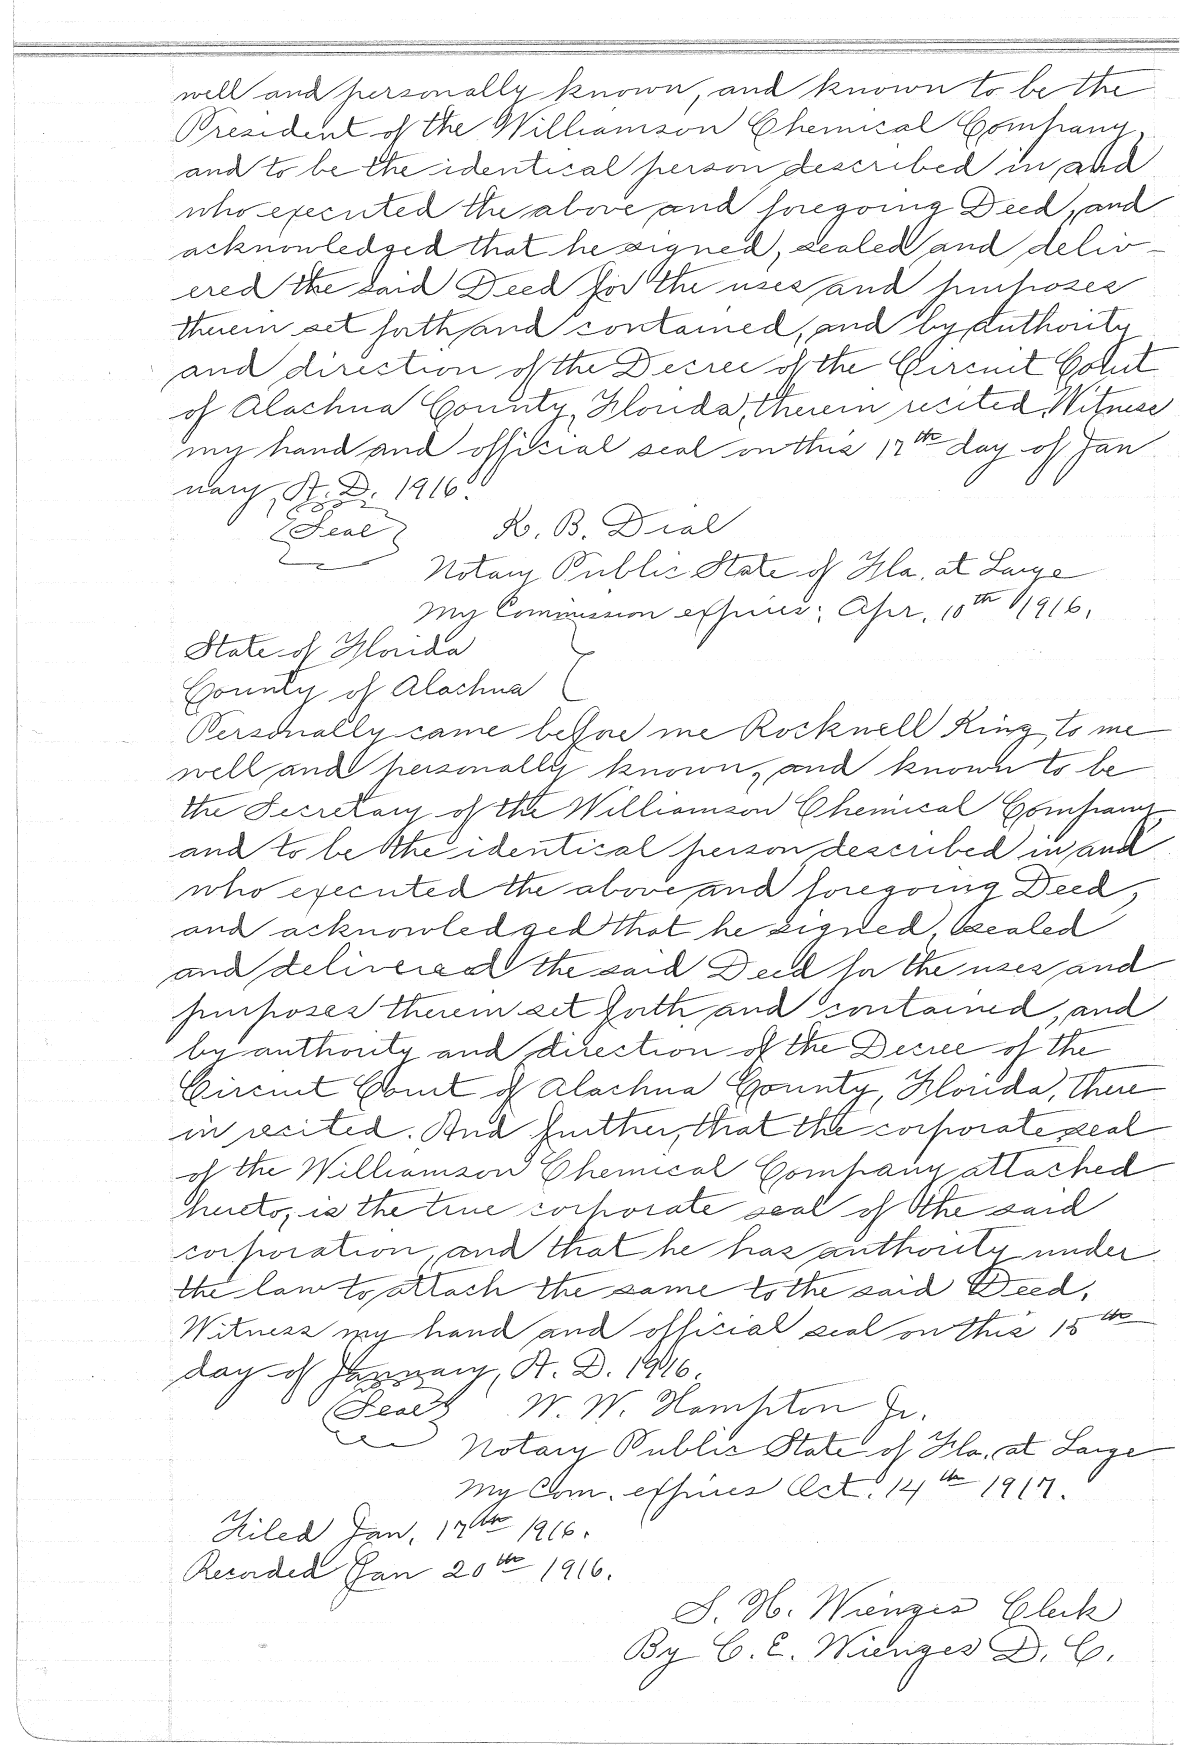 well and personally known, and known to be the
President of the Williamson Chemical Company,
and to be the identical person described in and
who executed the above and foregoing Deed, and
acknowledged that he signed, sealed and deliv-
ered the said Deed for the uses and purposes
therein set forth and contained, and by authority
and direction of the Decree of the Circuit Court
of Alachua County, Florida, therein recited. Witness
my hand and official seal on this 17th day of Jan
uary, A. D. 1916.
Seal K. B. Dial
Notary Public State of Fla. at Large
My Commission expires: Apr. 10th 1916.
State of Florida
County of Alachua
Personally came before me Rockwell King, to me
well and personally known, and known to be
the Secretary of the Williamson Chemical Company,
and to be the identical person described in and
who executed the above and foregoing Deed,
and acknowledged that he signed, sealed
and delivered the said Deed for the uses and
purposes therein set forth and contained, and
by authority and direction of the Decree of the
Circuit Court of Alachua County, Florida, there
in recited. And further, that the corporate seal
of the Williamson Chemical Company attached
hereto, is the true corporate seal of the said
corporation, and that he has authority under
the law to attach the same to the said Deed.
Witness my hand and official seal on this 15th
day of January, A. D. 1916.
Seal W. W. Hampton Jr.
Notary Public State of Fla. at Large
My Com. expires Oct. 14th 1917.
Filed Jan. 17th 1916.
Recorded Jan 20th 1916.
S. H. Wienges Clerk
By C. E. Wienges D. C.